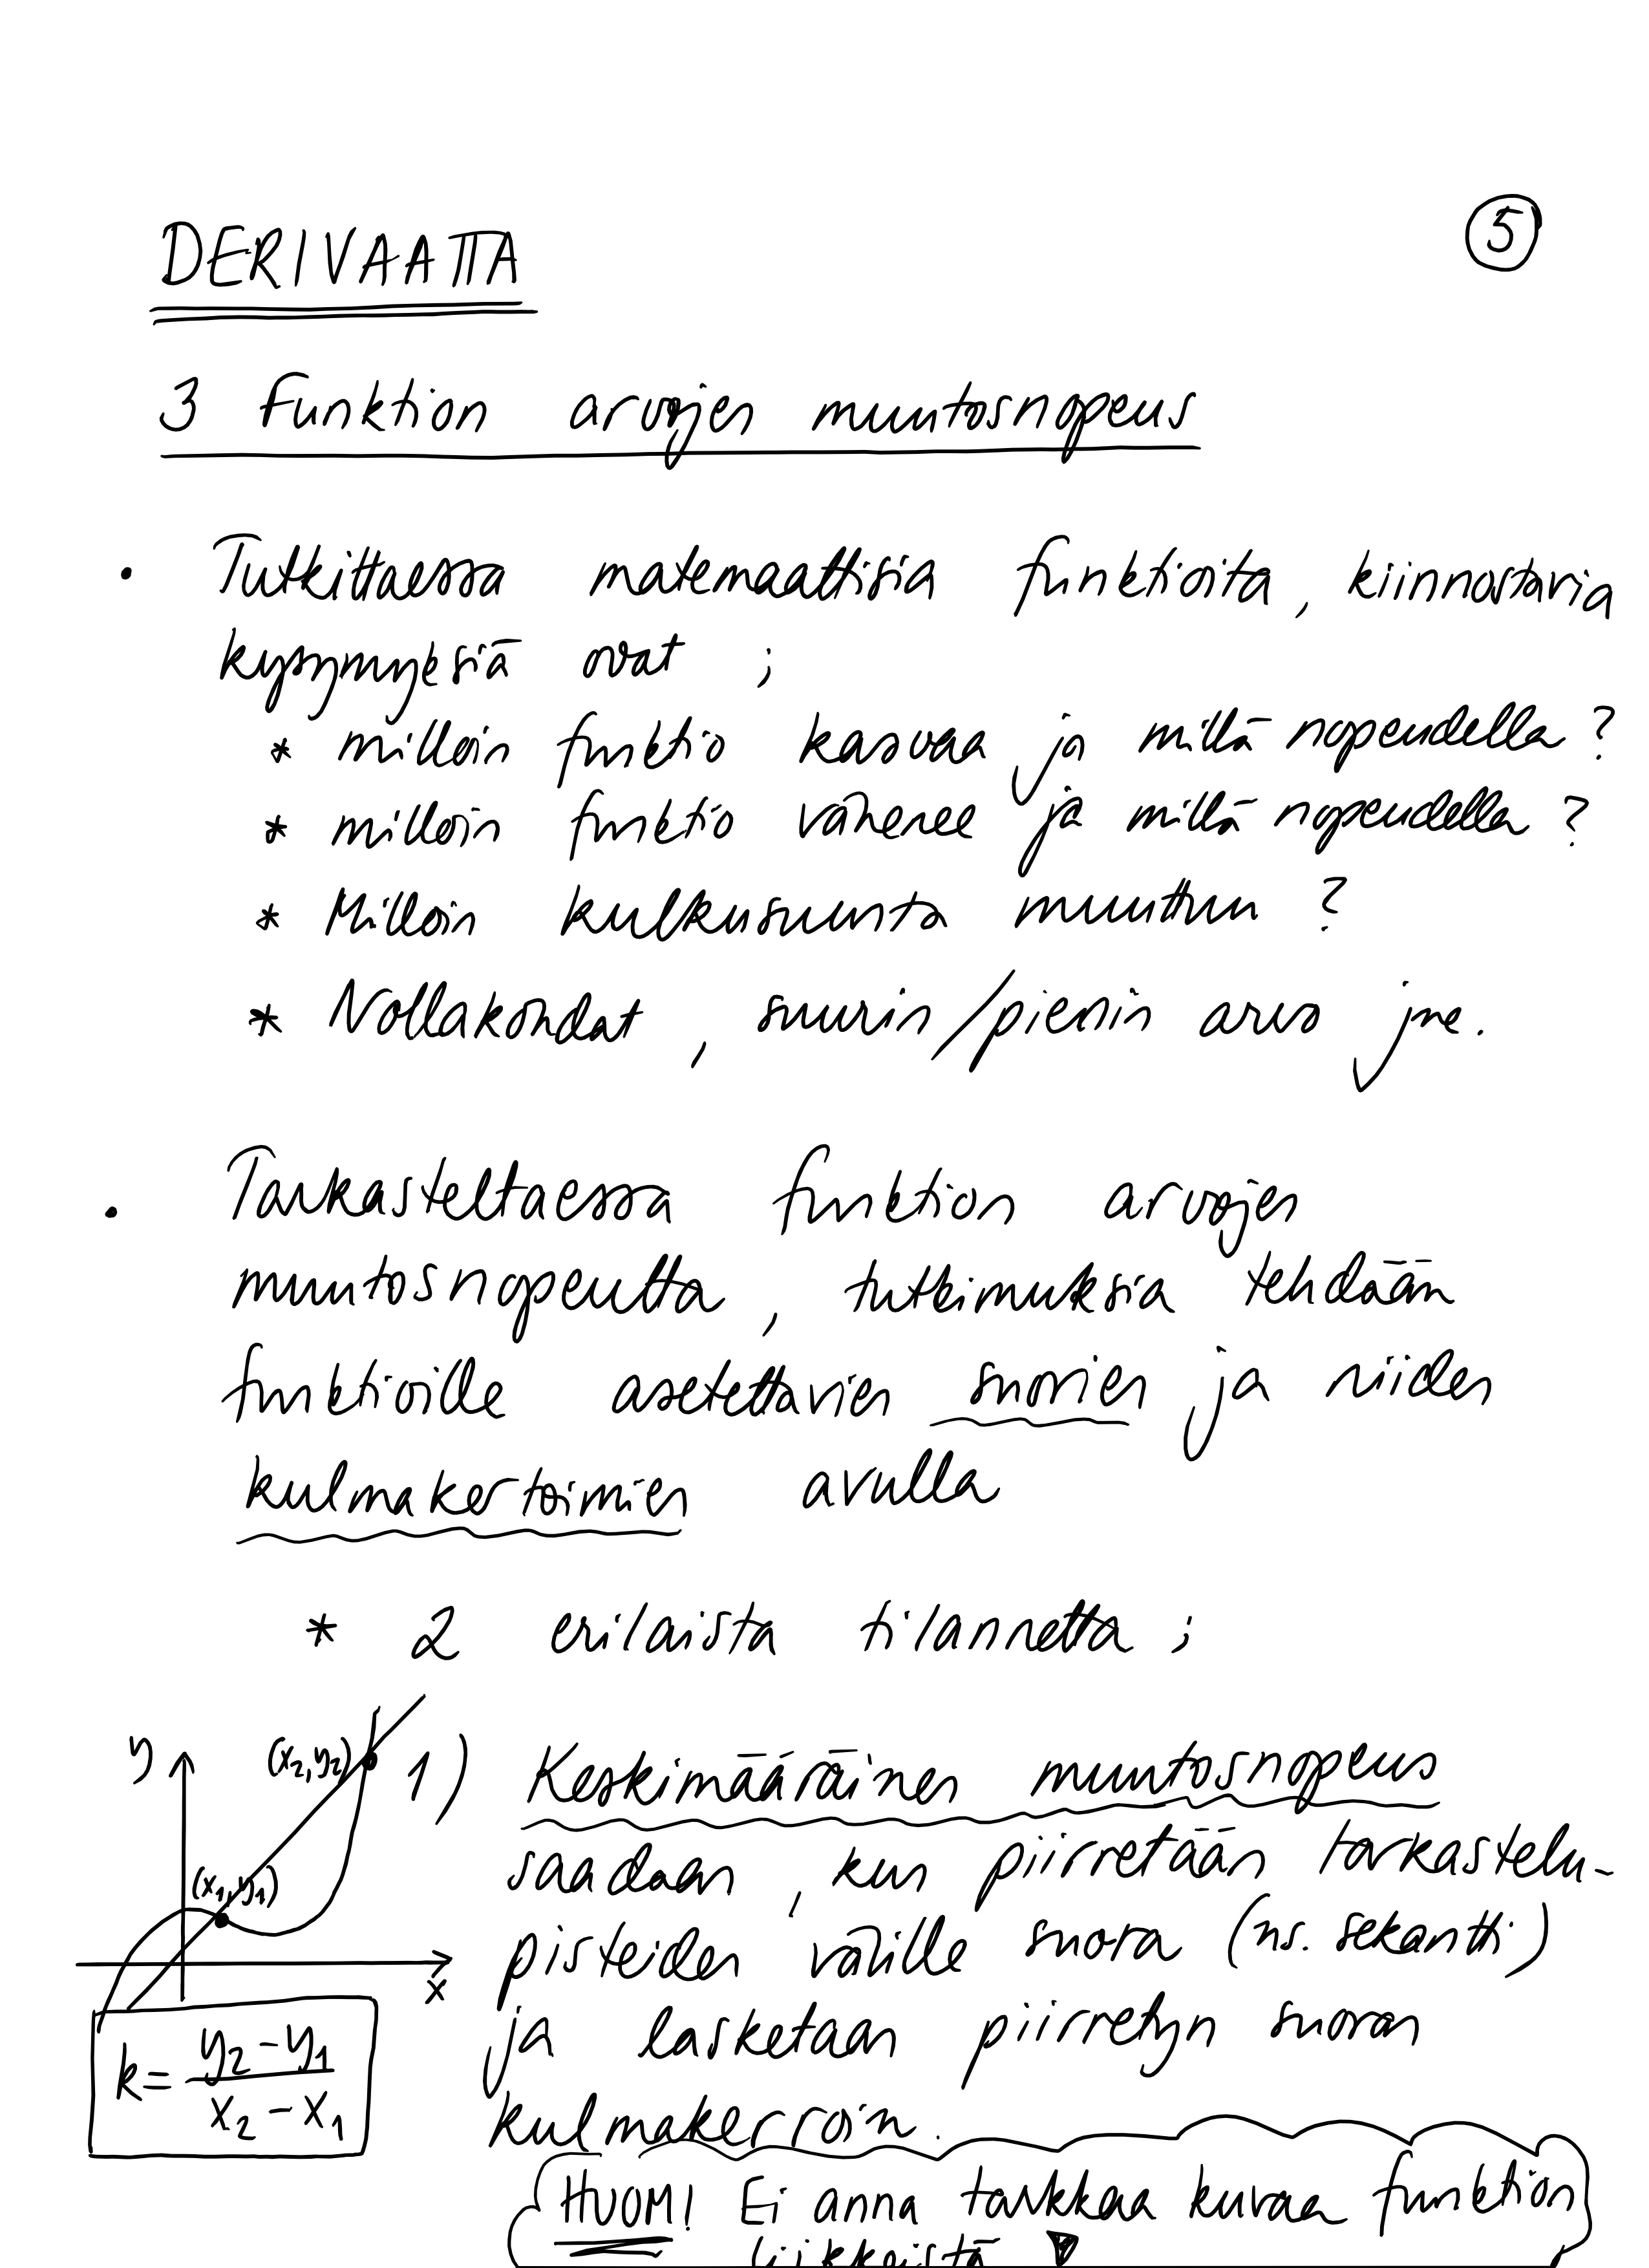 DERIVAATTA
5
3 Funktion arvojen muutosnopeus
• Tutkittaessa matemaattisia funktioita, kiinnostavia
kysymyksiä ovat ;
* milloin funktio kasvaa ja millä nopeudella ?
* milloin funktio vähenee ja millä nopeudella ?
* Milloin kulkusuunta muuttuu ?
* Nollakohdat, suurin/pienin arvo jne.
• Tarkasteltaessa funktion arvojen
muutosnopeutta, tutkimuksia tehdään
funktioille asetettavien suorien ja niiden
kulmakertoimien avulla
* 2 erilaista tilannetta ;
y
(x₂, y₂)
(x₁, y₁)
x
k = (y₂ - y₁) / (x₂ - x₁)
1) Keskimääräinen muutosnopeus
saadaan, kun piirretään tarkastelu-
pisteiden välille suora (ns. sekantti)
ja lasketaan piirretyn suoran
kulmakerroin.
HUOM! Ei anna tarkkaa kuvaa funktion
liikkeistä